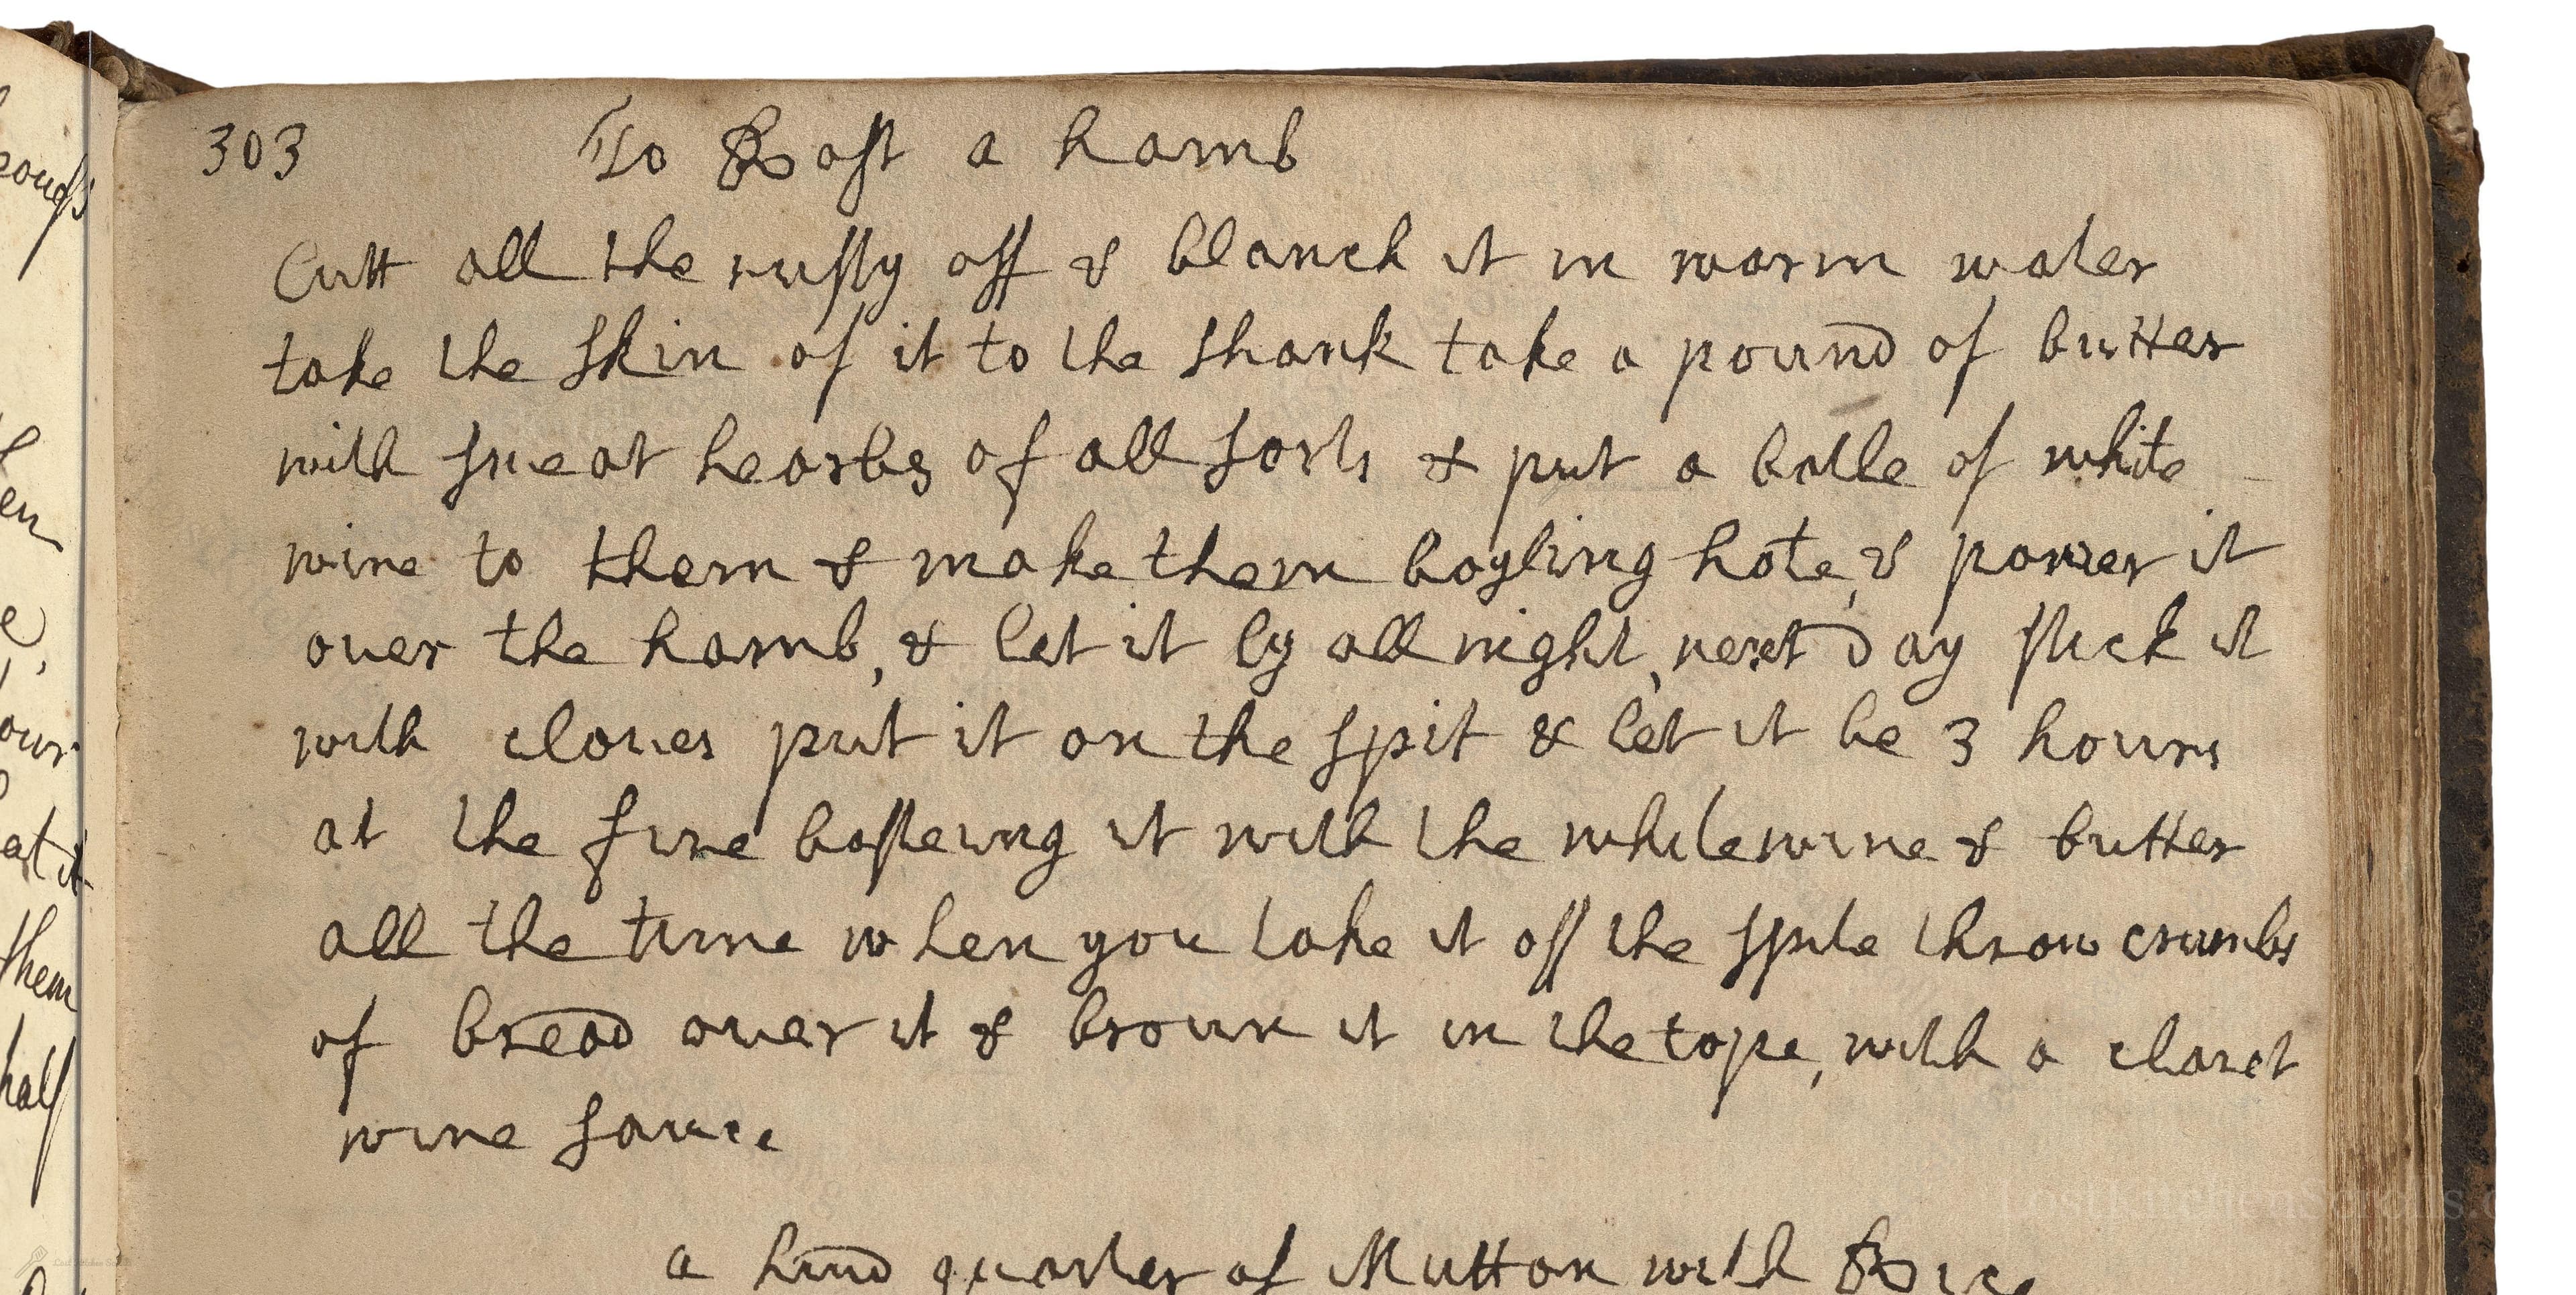 303 To Rost a hamb
Cutt all the rusty off & blanch it in warm water
take the skin of it to the shank take a pound of butter
with sweat hearbes of all sorts & put a botle of white
wine to them & make them boyling hote, & power it
over the hamb, & let it ly all night, next day stick it
with cloues put it on the spit & let it be 3 hours
at the fire basteing it with the whitewine & butter
all the time when you take it off the spite throw crumbs
of bread ouer it & broun it in the tope, with a claret
wine sauce
a hind quarter of Mutton with Rice